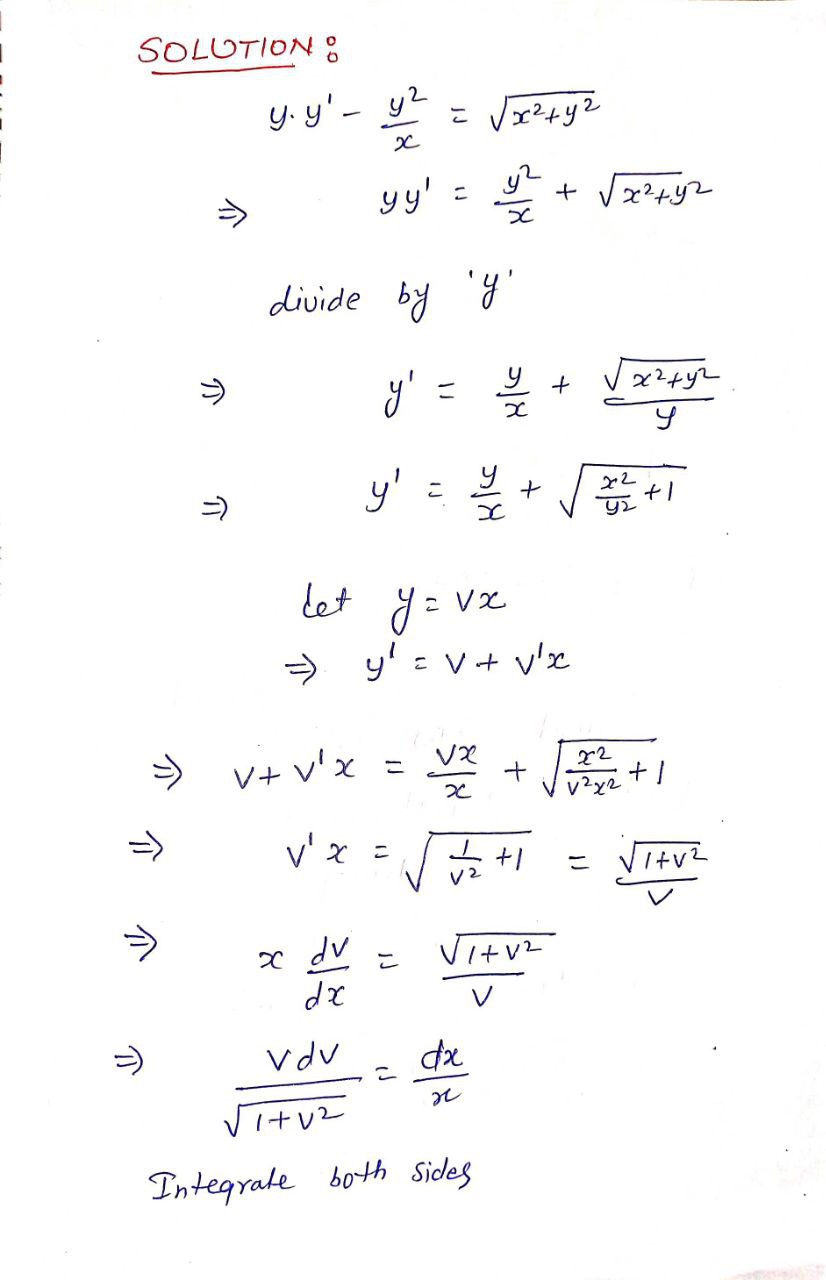 SOLUTION :
y.y' - y²/x = √(x²+y²)
⇒ yy' = y²/x + √(x²+y²)
divide by 'y'
⇒ y' = y/x + √(x²+y²)/y
⇒ y' = y/x + √(x²/y² +1)
Let y = vx
⇒ y' = v + v'x
⇒ v + v'x = vx/x + √(x²/v²x² + 1)
⇒ v'x = √(1/v² +1) = √(1+v²)/v
⇒ x dv/dx = √(1+v²)/v
⇒ vdv/√(1+v²) = dx/x
Integrate both sides